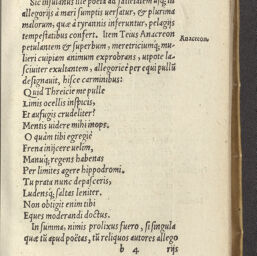 Sic insulanus ille poëta ad satietatem usq; in
allegorijs à mari sumptis uersatur, & plurima
malorum, quæ à tyrannis inferuntur, pelagijs
tempestatibus confert. Item Teius Anacreon
Anacreon.
petulantem & superbum, meretriciumq; mu-
lieri cuipiam animum exprobrans, utpote la-
sciuiter exultantem, allegoricè per equi pullū
designauit, hisce carminibus:
Quid Threicie me pulle
Limis ocellis inspicis,
Et aufugis crudeliter?
Mentis uidere mihi inops,
O quàm tibi egregiè
Frena inijcere uelim,
Manuq; regens habenas
Per limites agere hippodromi.
Tu prata nunc depasceris,
Ludensq; saltas leniter.
Non obtigit enim tibi
Eques moderandi doctus.
In summa, nimis prolixus fuero, si singula
quæ tū apud poëtas, tū reliquos autores allego
b 4 rijs